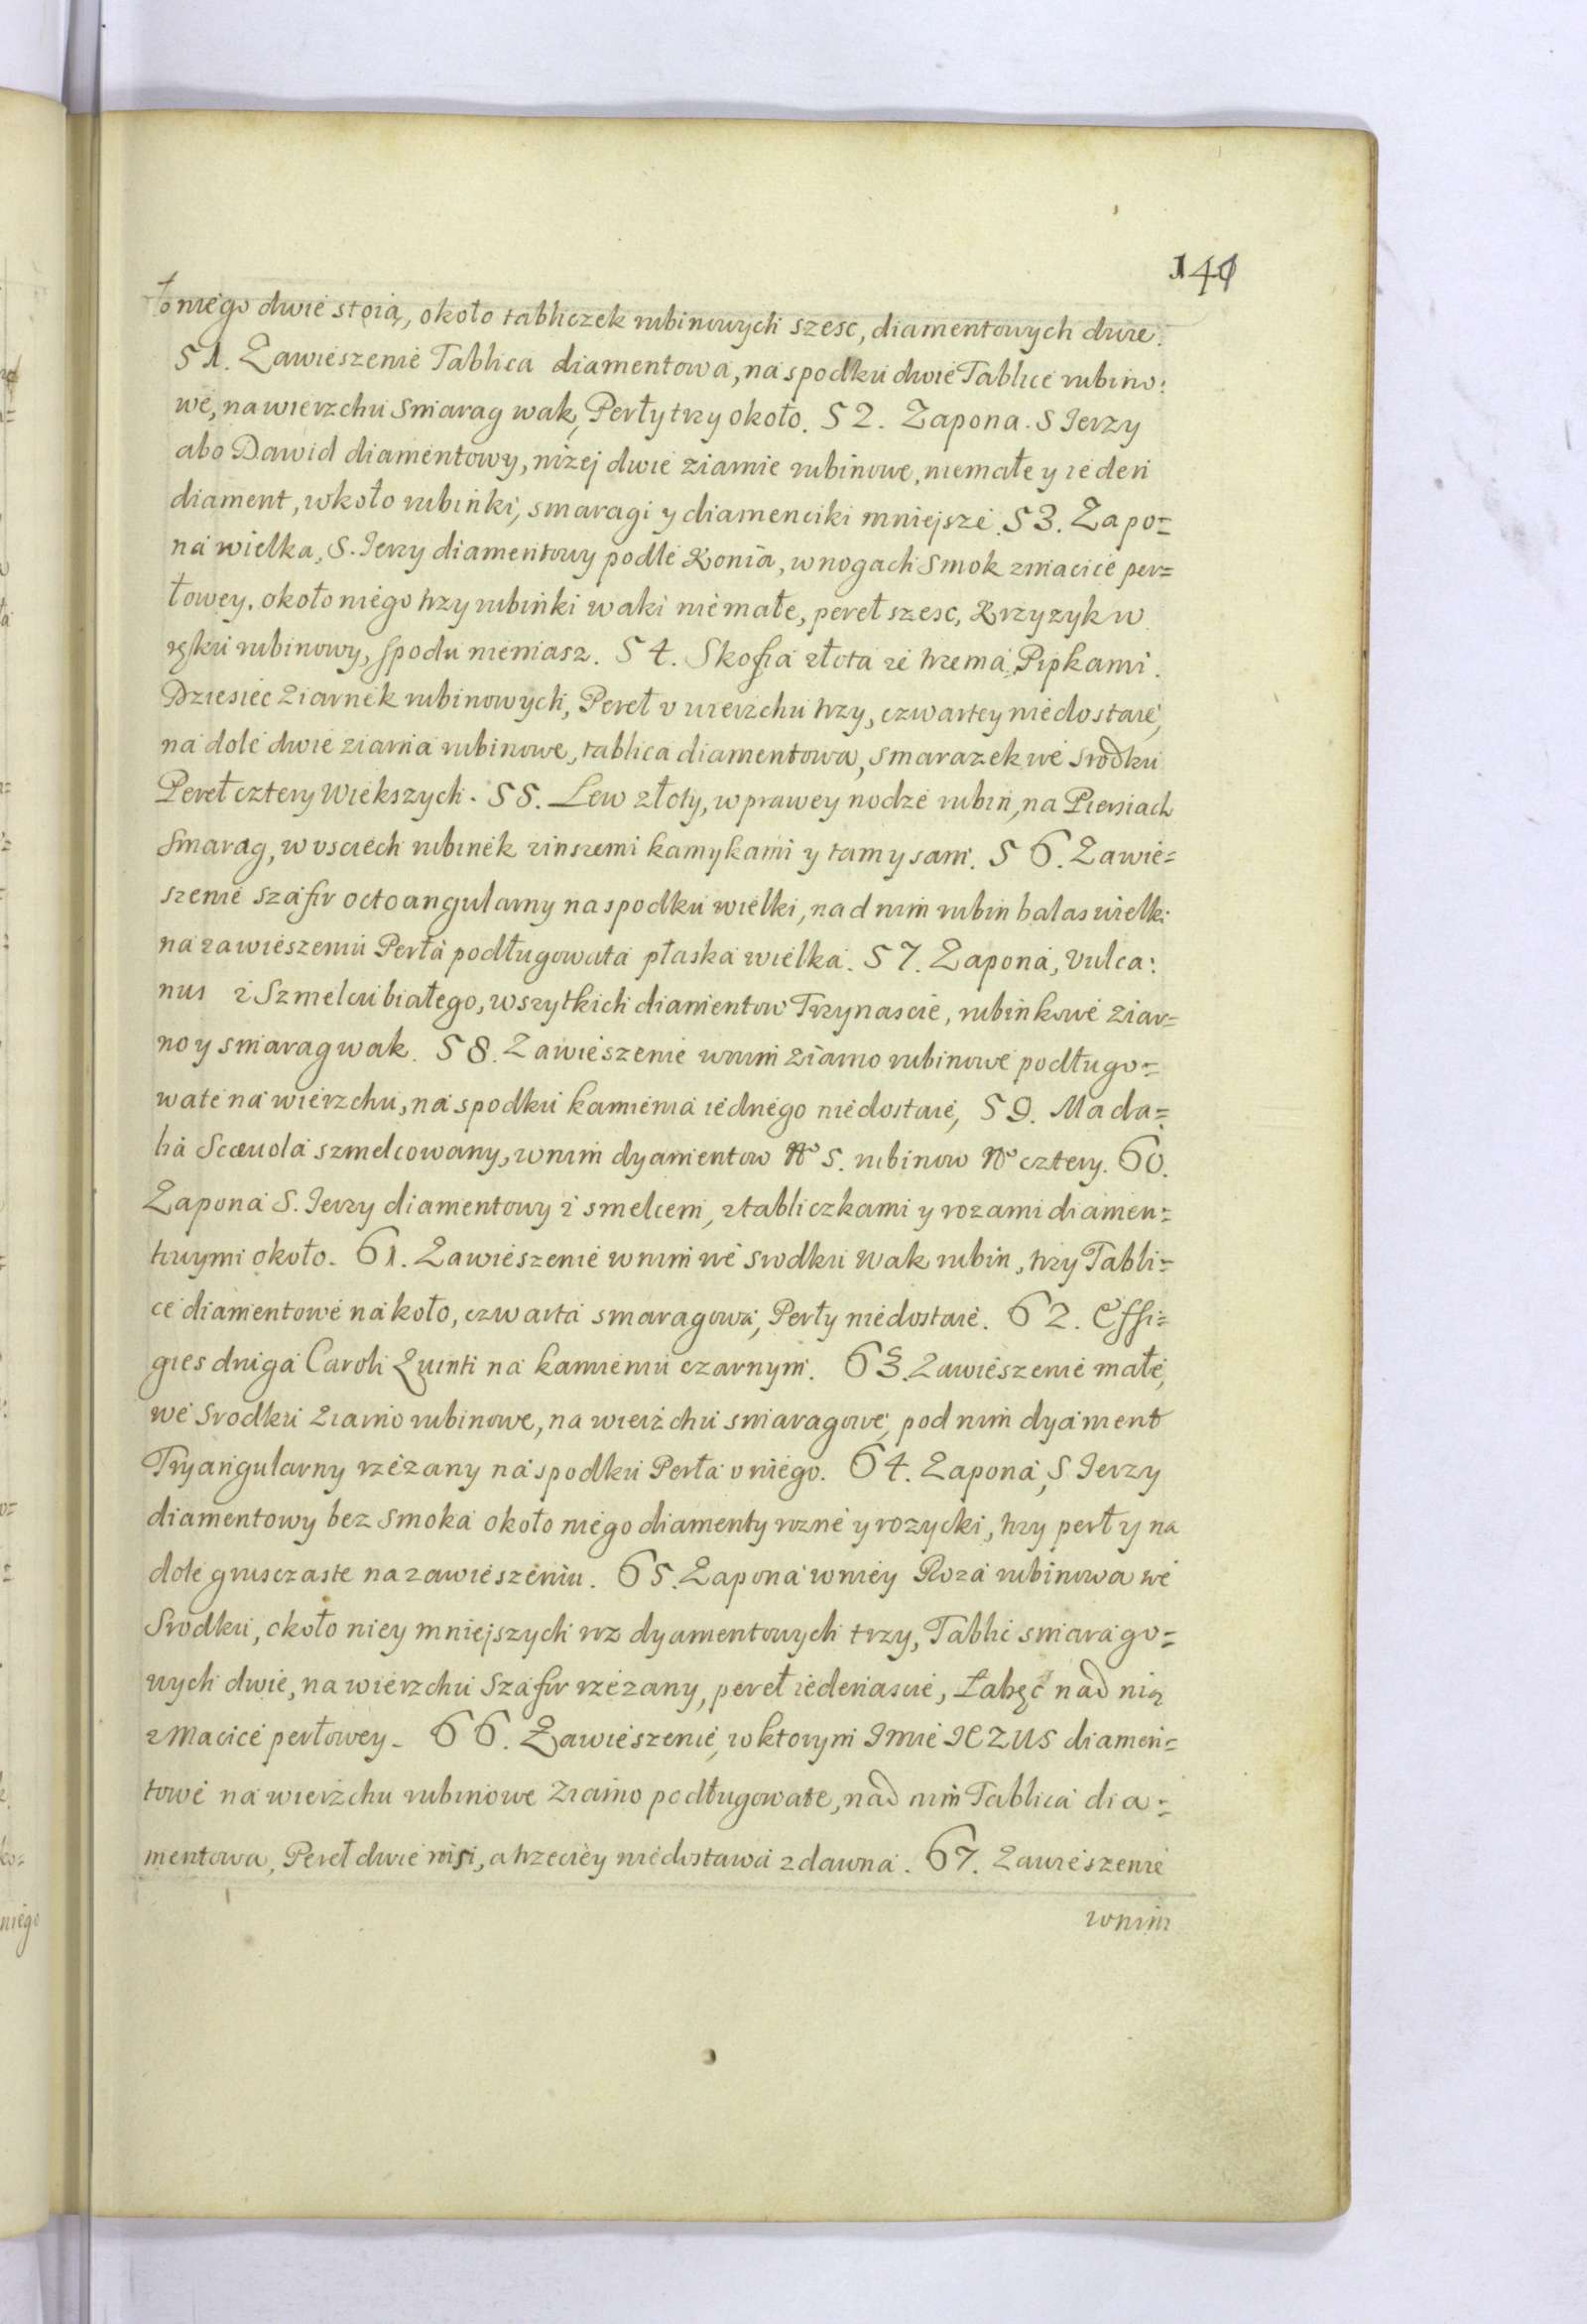 141
ło niego dwie stoią, około tabliczek rubinowych szesc, diamentowych dwie.
51. Zawieszenie Tablica diamentowa, na spodku dwie Tablice rubino:
we, na wierzchu Smarag wak, Perły trzy około. 52. Zapona. S Jerzy
abo Dawid diamentowy, niżej dwie ziarnie rubinowe, niemałe y ieden
diament, wkoło rubinki, smaragi y diamenciki mniejsze. 53. Zapo=
na wielka, S. Jerzy diamentowy podle Konia, w nogach Smok z macice per=
łowey, około niego trzy rubinki waki niemałe, pereł szesc, Krzyzyk w
ręku rubinowy, spodu niemasz. 54. Skofia złota ze trzema Pipkami.
Dziesiec ziarnek rubinowych, Pereł v wierzchu trzy, czwartey niedostaie,
na dole dwie ziarna rubinowe, tablica diamentowa, smarazek we srodku
Pereł cztery Wiekszych. 55. Lew złoty, w prawey nodze rubin, na Piersiach
Smarag, w vsciech rubinek z inszemi kamykami y tam y sam. 56. Zawie=
szenie szafir octoangularny na spodku wielki, nad nim rubin balas wielki
na zawieszeniu Perła podługowata płaska wielka. 57. Zapona, Vulca:
nus z Szmelcu białego, wszytkich diamentow Trzynascie, rubinkowe ziar=
no y smarag wak. 58. Zawieszenie w nim ziarno rubinowe podługo=
wate na wierzchu, na spodku kamienia iednego niedostaie, 59. Mada=
lia Scæuola szmelcowany, w nim dyamentow No 5. rubinow No cztery. 60.
Zapona S. Jerzy diamentowy z smelcem, z tabliczkami y rozami diamen=
towymi około. 61. Zawieszenie w nim we srodku wak rubin, trzy Tabli=
ce diamentowe na koło, czwarta smaragowa, Perły niedostaie. 62. Effi=
gies druga Caroli Quinti na kamieniu czarnym. 63. Zawieszenie małe,
we srodku ziarno rubinowe, na wierzchu smaragowe, pod nim dyament
Tryangularny rzezany na spodku Perła v niego. 64. Zapona, S Jerzy
diamentowy bez smoka około niego diamenty rozne y rozycki, trzy perły na
dole grusczaste na zawieszeniu. 65. Zapona w niey Roza rubinowa we
Srodku, około niey mniejszych roz dyamentowych trzy, Tablic smarago=
wych dwie, na wierzchu Szafir rzezany, pereł iedenascie, Łabęć nad nią
z Macice perłowey. 66. Zawieszenie, w ktorym Imie IEZUS diamen=
towe na wierzchu rubinowe ziarno podługowate, nad nim Tablica dia=
mentowa, Pereł dwie wisi, a trzeciey niedostawa zdawna. 67. Zawieszenie
w nim